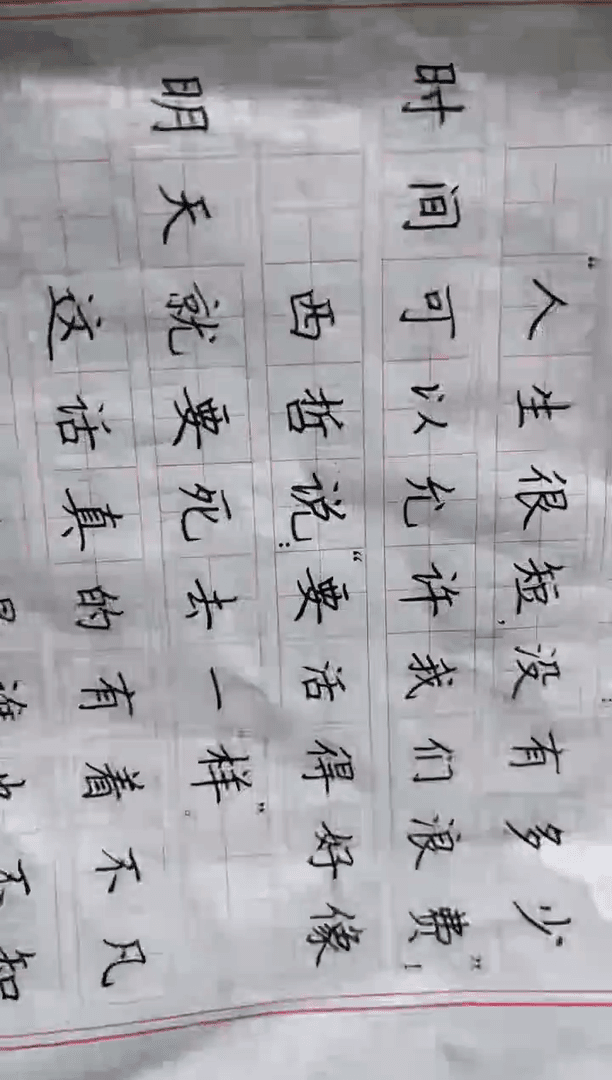 “人生很短,没有多少
时间可以允许我们浪费!”
西哲说:“要活得好像
明天就要死去一样”。
这话真的有着不凡